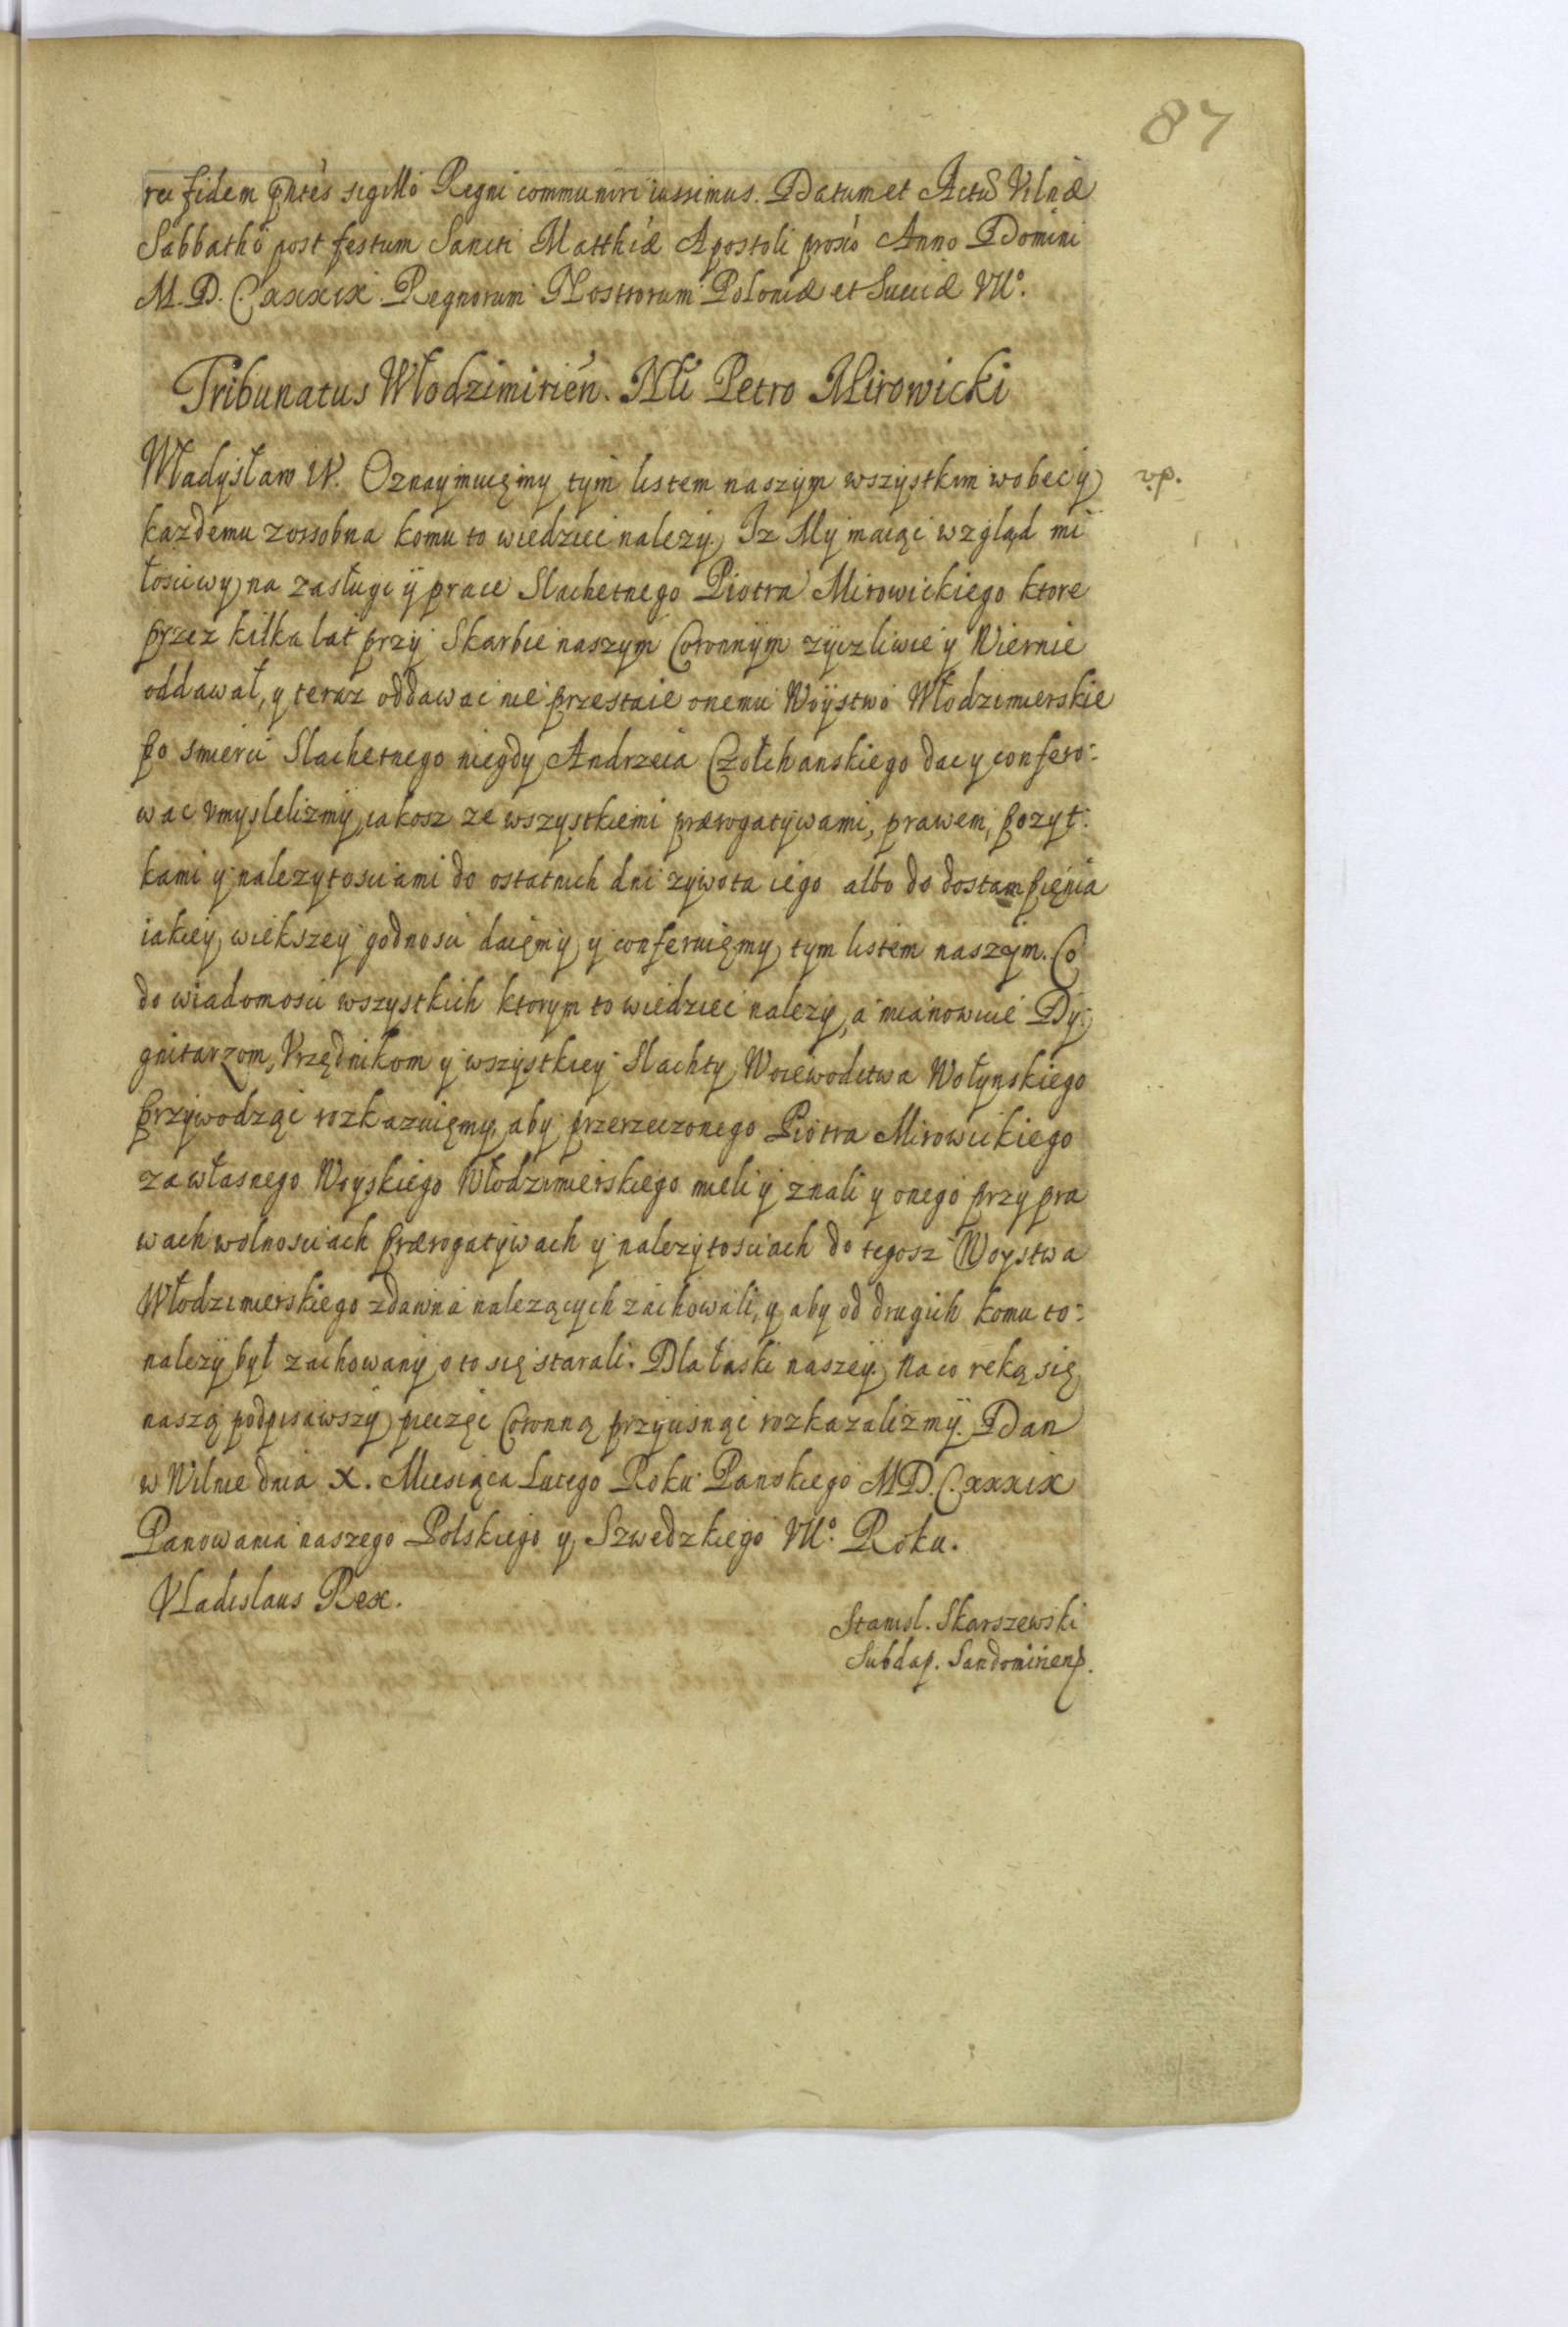 87
rei fidem pntes sigillo Regni communiri iussimus. Datum et Actu Vilnæ
Sabbatho post festum Sancti Matthiæ Apostoli proxio Anno Domini
M.D.C.xxxix Regnorum Nostrorum Poloniæ et Sueciæ VIIo.
Tribunatus Włodzimirien. Nli Petro Mirowicki
Władysław IV. Oznaymuięmy tym listem naszym wszystkim wobec y
v.p.
każdemu zossobna komu to wiedziec nalezy, Iz My maiąc wzgląd mi
łosciwy na zasługi y prace Slachetnego Piotra Mirowickiego ktore
przez kilka lat przy Skarbie naszym Coronnym zyczliwie y Wiernie
oddawał, y teraz oddawac nie przestaie onemu Woystwo Włodzimierskie
po smierci Slachetnego niegdy Andrzeia Czołchanskiego dac y confero:
wac vmyslelizmy, iakosz ze wszystkiemi prærogatywami, prawem, pozyt:
kami y nalezytosciami do ostatnich dni zywota iego albo do dostampięnia
iakiey wiekszey godnosci daięmy y conferuięmy tym listem naszym. Co
do wiadomosci wszystkich ktorym to wiedziec nalezy, a mianowicie Dy:
gnitarzom, Vrzędnikom y wszystkiey Slachty Woiewodctwa Wołynskiego
przywodząc rozkazuięmy, aby przerzeczonego Piotra Mirowickiego
za własnego Woyskiego Włodzimierskiego mieli y znali y onego przy pra
wach wolnosciach prærogatywach y nalezytosciach do tegosz Woystwa
Włodzimierskiego zdawna nalezących zachowali, y aby od drugich komu to:
nalezy był zachowany o to się starali. Dla łaski naszey. Na co reką się
naszą podpisawszy pieczęc Coronną przycisnąc rozkazalizmy. Dan
w Wilnie dnia X. Miesiąca Lutego Roku Panskiego MD.C.xxxix
Panowania naszego Polskiego y Szwedzkiego VIIo. Roku.
Vladislaus Rex.
Stanisl. Skarszewski
Subdap. Sandomirien.